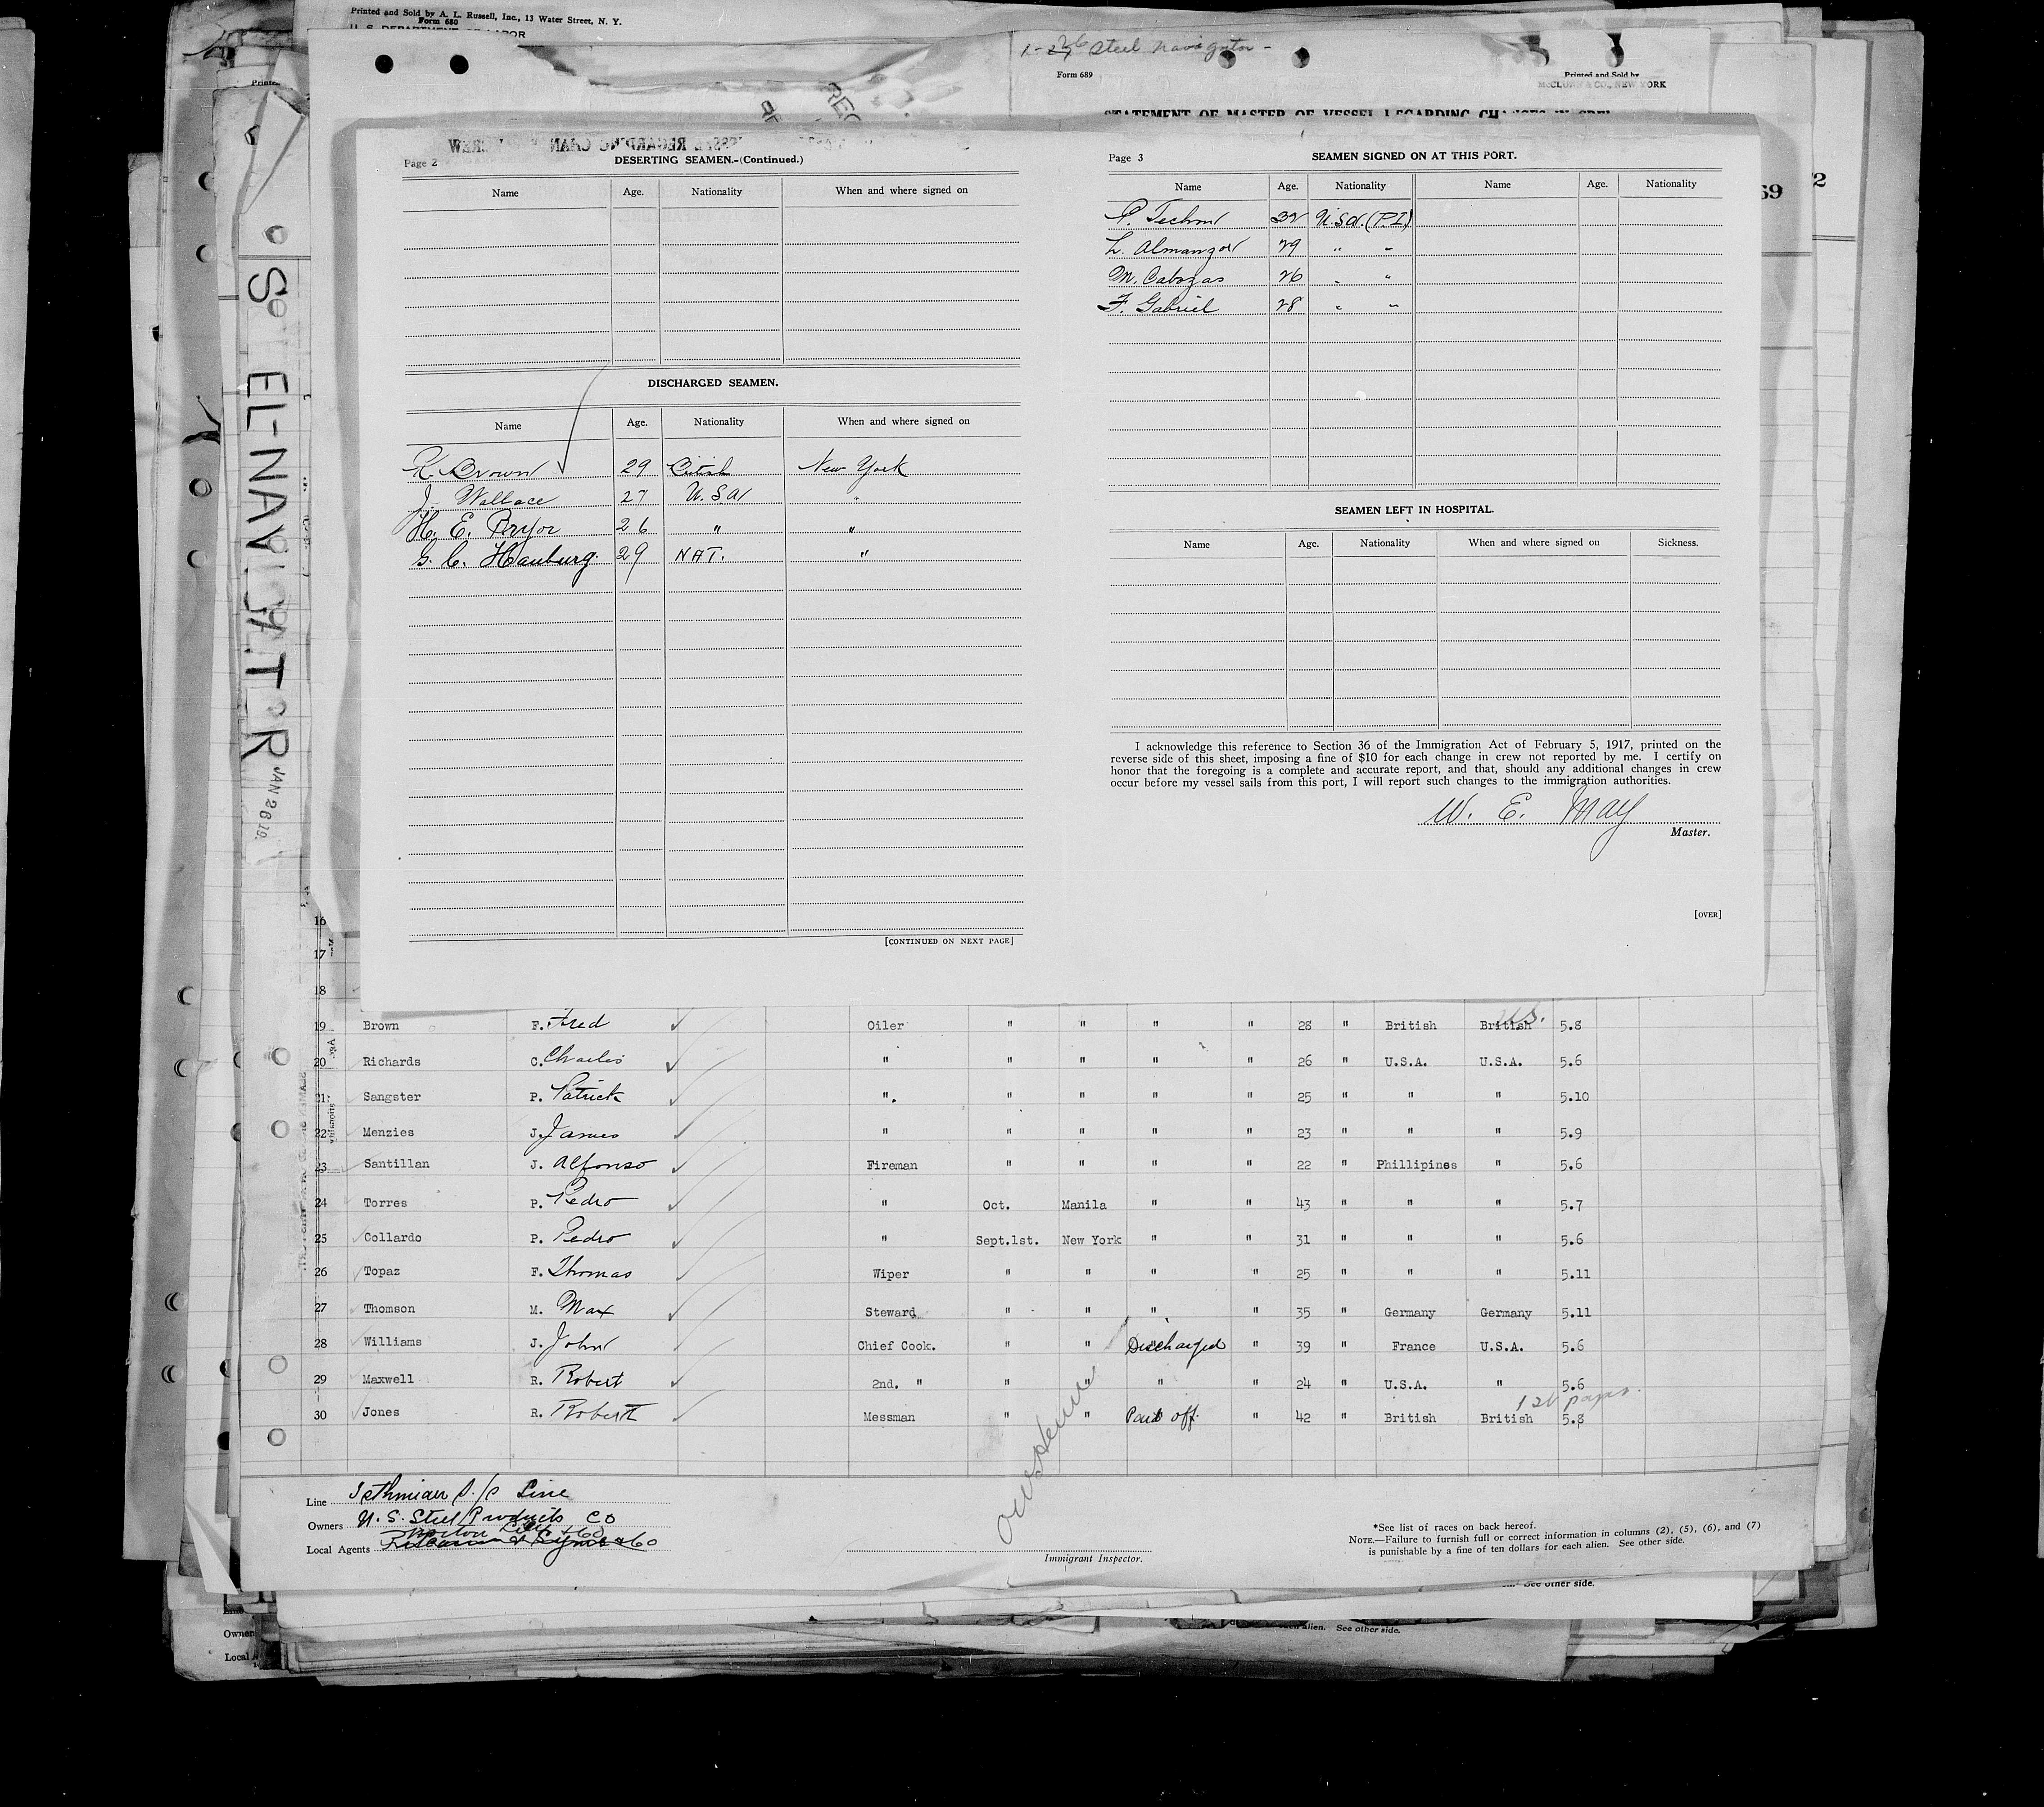 Printed and Sold by A. L. Russell, Inc., 13 Water Street, N. Y.
Form 680
Steel Navigator -
Form 689
Printed and Sold by
McCLUNN & CO., NEW YORK
STATEMENT OF MASTER OF VESSEL REGARDING CHANGES IN CREW
Page 2
DESERTING SEAMEN.-(Continued.)
Name Age. Nationality When and where signed on
DISCHARGED SEAMEN.
Name Age. Nationality When and where signed on
R. Brown 29 New York
J. Wallace 27 U.S.A. "
H. E. Pryor 26 " "
G. C. Hamburg. 29 NAT. "
[CONTINUED ON NEXT PAGE]
Page 3
SEAMEN SIGNED ON AT THIS PORT.
Name Age. Nationality Name Age. Nationality
P. 32 U.S.A. (P.I.)
L. Almanzor 29 " "
M. Cabozas 26 " "
F. Gabriel 28 " "
SEAMEN LEFT IN HOSPITAL.
Name Age. Nationality When and where signed on Sickness.
I acknowledge this reference to Section 36 of the Immigration Act of February 5, 1917, printed on the
reverse side of this sheet, imposing a fine of $10 for each change in crew not reported by me. I certify on
honor that the foregoing is a complete and accurate report, and that, should any additional changes in crew
occur before my vessel sails from this port, I will report such changes to the immigration authorities.
W. E. May
Master.
[OVER]
JAN 26 19
16
17
18
U.S.
19 Brown F. Fred Oiler " " " " 28 " British British 5.8
20 Richards C. Charles " " " " " 26 " U.S.A. U.S.A. 5.6
21 Sangster P. Patrick ". " " " " 25 " " " 5.10
22 Menzies J. James " " " " " 23 " " " 5.9
23 Santillan J. Alfonso Fireman " " " " 22 " Phillipines " 5.6
24 Torres P. Pedro " Oct. Manila " " 43 " " " 5.7
25 Collardo P. Pedro " Sept.1st. New York " " 31 " " " 5.6
26 Topaz F. Thomas Wiper " " " " 25 " " " 5.11
27 Thomson M. Max Steward " " " " 35 " Germany Germany 5.11
28 Williams J. John Chief Cook. " " Discharged " 39 " France U.S.A. 5.6
29 Maxwell R. Robert 2nd. " " " " " 24 " U.S.A. " 5.6
30 Jones R. Robert Messman " " Paid off. " 42 " British British 5.8
Line Isthmian S/S Line
Owners U. S. Steel Products Co
Local Agents Norton Lilly & Co
Immigrant Inspector.
*See list of races on back hereof.
NOTE.—Failure to furnish full or correct information in columns (2), (5), (6), and (7)
is punishable by a fine of ten dollars for each alien. See other side.
See other side.
alien. See other side.